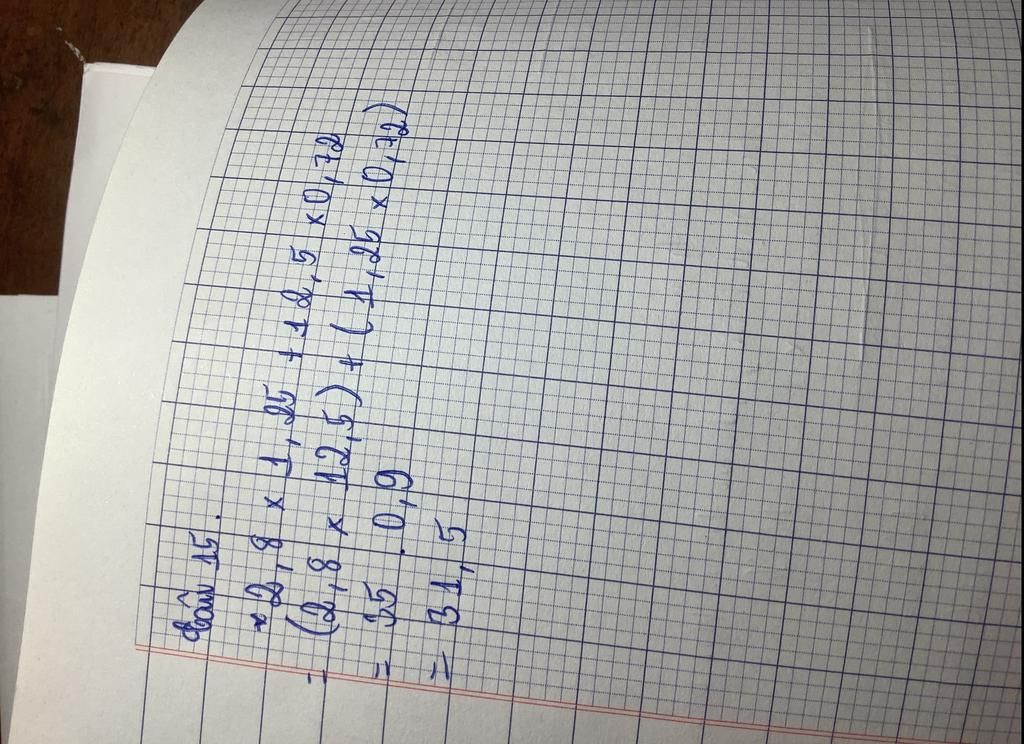 Câu 15.
* 2,8 x 1,25 + 12,5 x 0,72
= (2,8 x 12,5) + (1,25 x 0,72)
= 35 . 0,9
= 31,5